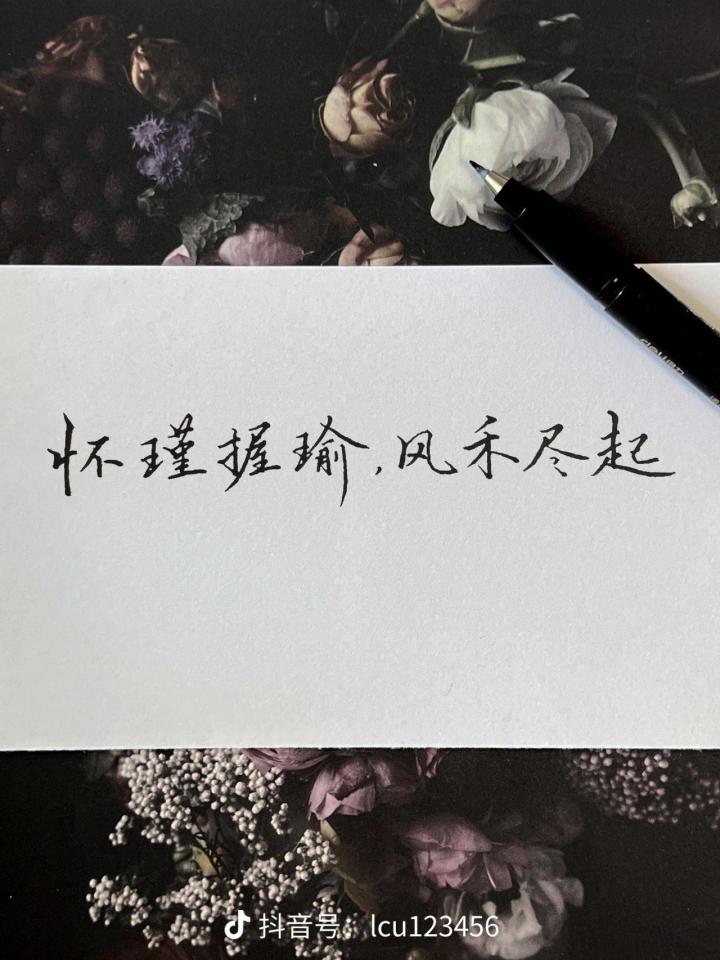 怀瑾握瑜,风禾尽起
抖音号: lcu123456